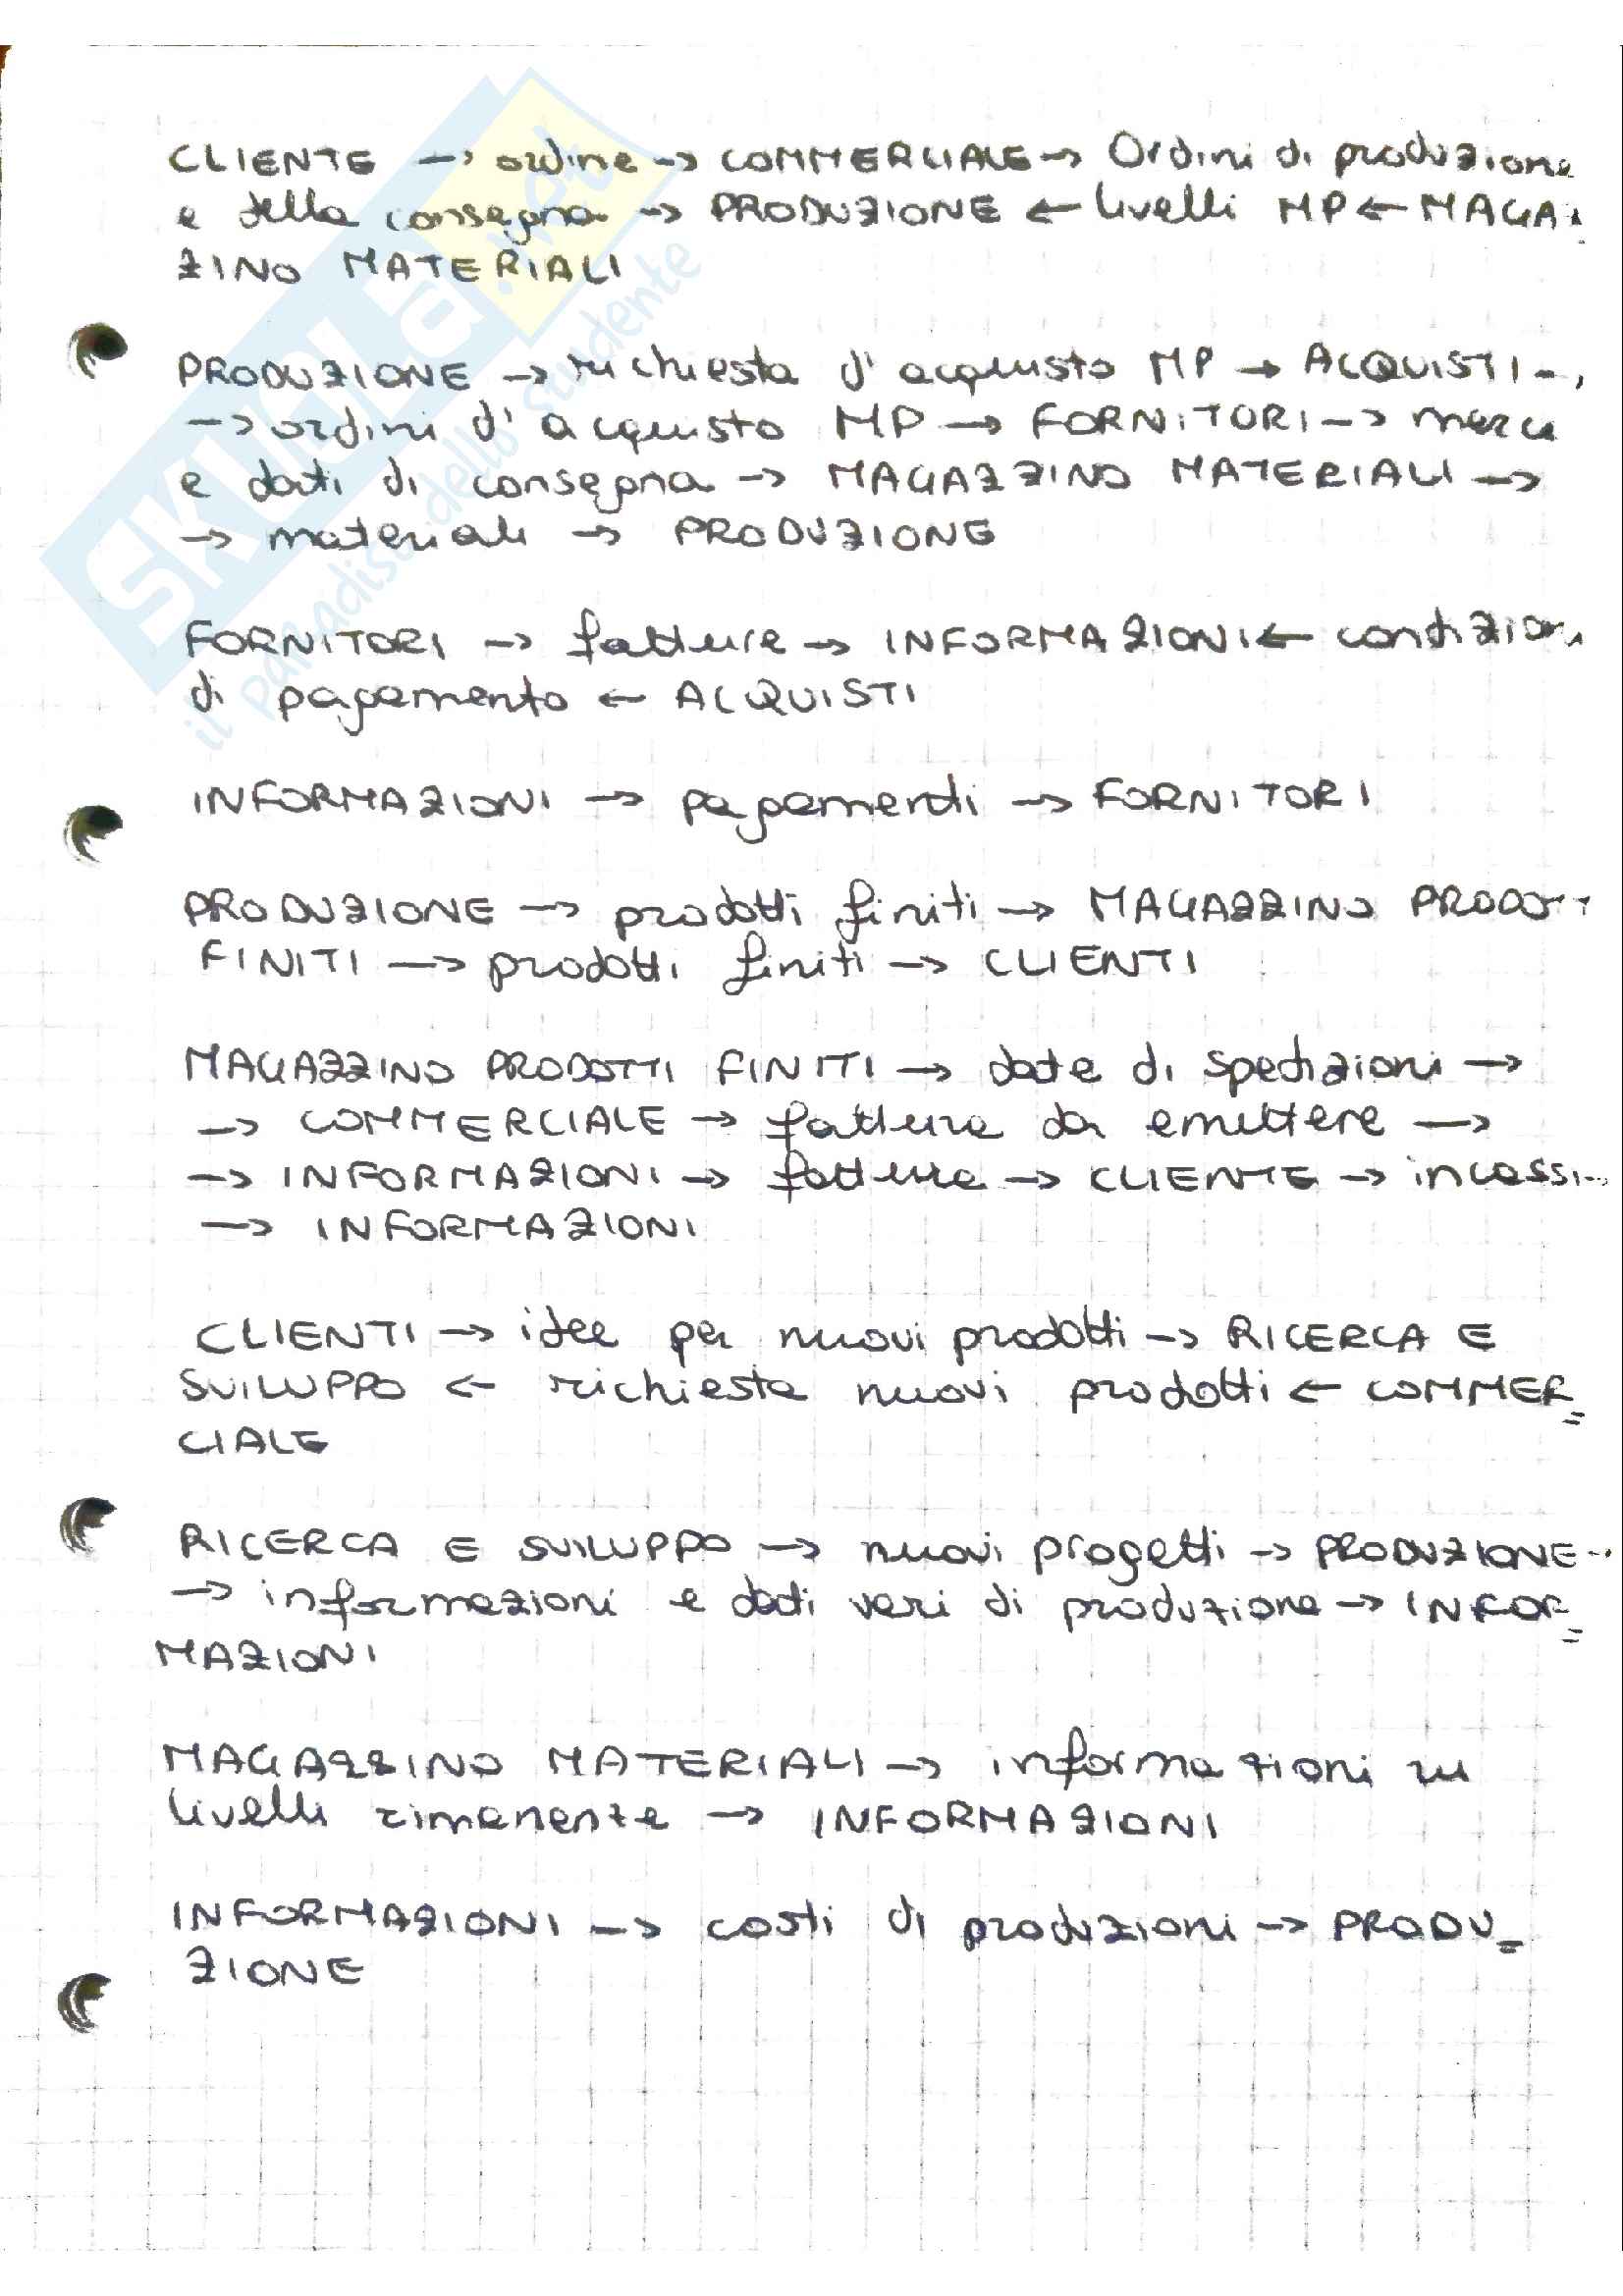 CLIENTE → ordine → COMMERCIALE → Ordini di produzione
e della consegna → PRODUZIONE ← livelli MP ← MAGA
ZINO MATERIALI
PRODUZIONE → richiesta d'acquisto MP → ACQUISTI →
→ ordini d'acquisto MP → FORNITORI → merce
e dati di consegna → MAGAZZINO MATERIALI →
→ materiali → PRODUZIONE
FORNITORI → fatture → INFORMAZIONI ← condizioni
di pagamento ← ACQUISTI
INFORMAZIONI → pagamenti → FORNITORI
PRODUZIONE → prodotti finiti → MAGAZZINO PRODOTTI
FINITI → prodotti finiti → CLIENTI
MAGAZZINO PRODOTTI FINITI → date di spedizioni →
→ COMMERCIALE → fatture da emettere →
→ INFORMAZIONI → fatture → CLIENTE → incassi →
→ INFORMAZIONI
CLIENTI → idee per nuovi prodotti → RICERCA E
SVILUPPO ← richieste nuovi prodotti ← COMMER=
CIALE
RICERCA E SVILUPPO → nuovi progetti → PRODUZIONE →
→ informazioni e dati veri di produzione → INFOR=
MAZIONI
MAGAZZINO MATERIALI → informazioni su
livelli rimanente → INFORMAZIONI
INFORMAZIONI → costi di produzioni → PRODU=
ZIONE
SKUOLA.net
il paradiso dello studente